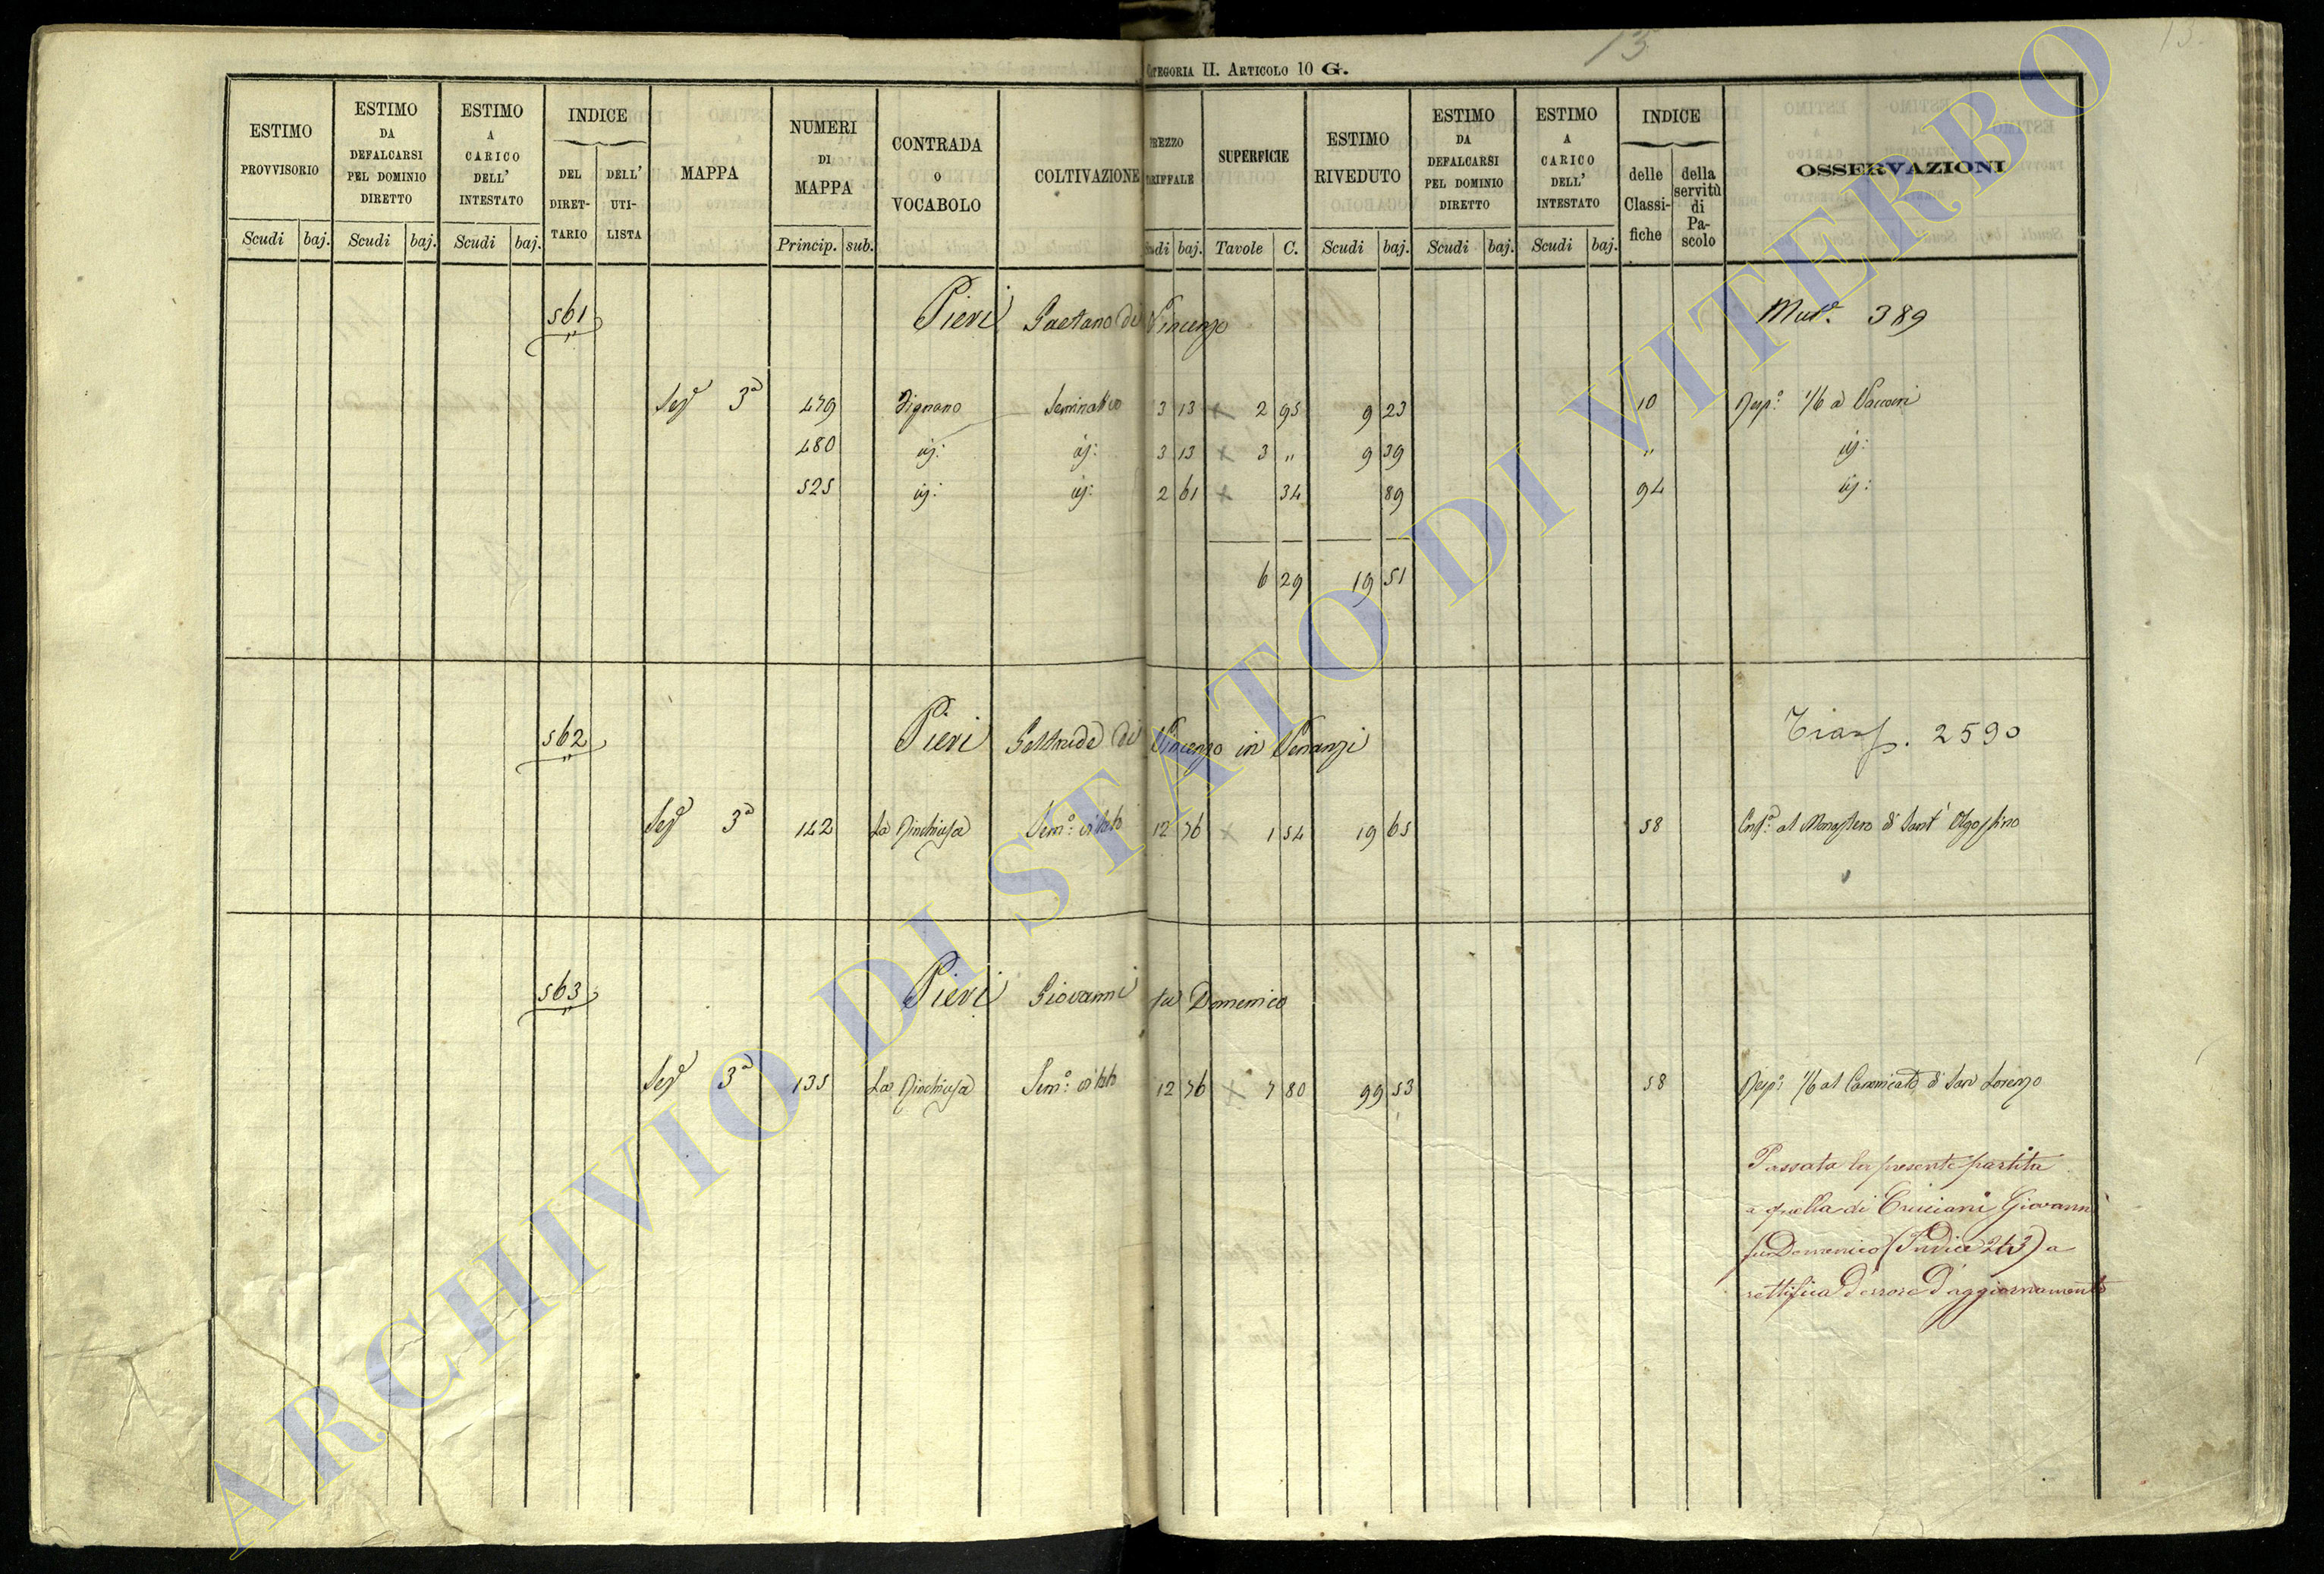 13
13.
CATEGORIA II. ARTICOLO 10 G.
ESTIMO PROVVISORIO Scudi baj.
ESTIMO DA DEFALCARSI PEL DOMINIO DIRETTO Scudi baj.
ESTIMO A CARICO DELL' INTESTATO Scudi baj.
INDICE DEL DIRET-TARIO DELL' UTI-LISTA
MAPPA
NUMERI DI MAPPA Princip. sub.
CONTRADA O VOCABOLO
COLTIVAZIONE
PREZZO TARIFFALE Scudi baj.
SUPERFICIE Tavole C.
ESTIMO RIVEDUTO Scudi baj.
ESTIMO DA DEFALCARSI PEL DOMINIO DIRETTO Scudi baj.
ESTIMO A CARICO DELL' INTESTATO Scudi baj.
INDICE delle Classi-fiche della servitù di Pa-scolo
OSSERVAZIONI
561 Pieri Gaetano di Vincenzo 389
Sez.e 3a 479 Vignano Seminativo 3 13 2 95 9 23 10 Resp.o 1/6 a
480 3 13 3 " 9 39 "
525 2 61 34 89 94
6 29 19 51
562 Pieri Geltrude di Vincenzo in Venanzi Trasp. 2590
Sez.e 3a 142 La Rinchiusa Sem.o vitato 12 76 1 54 19 65 58 al Monastero di Sant' Agostino
563 Pieri Giovanni fu Domenico
Sez.e 3a 135 La Rinchiusa Sem.o vitato 12 76 7 80 99 53 58 Resp.o 1/6 al Canonicato di San Lorenzo
Passata la presente partita
a quella di Cruciani Giovanni
fu Domenico (Indice 243) a
rettifica d'errore d'aggiornamento
ARCHIVIO DI STATO DI VITERBO